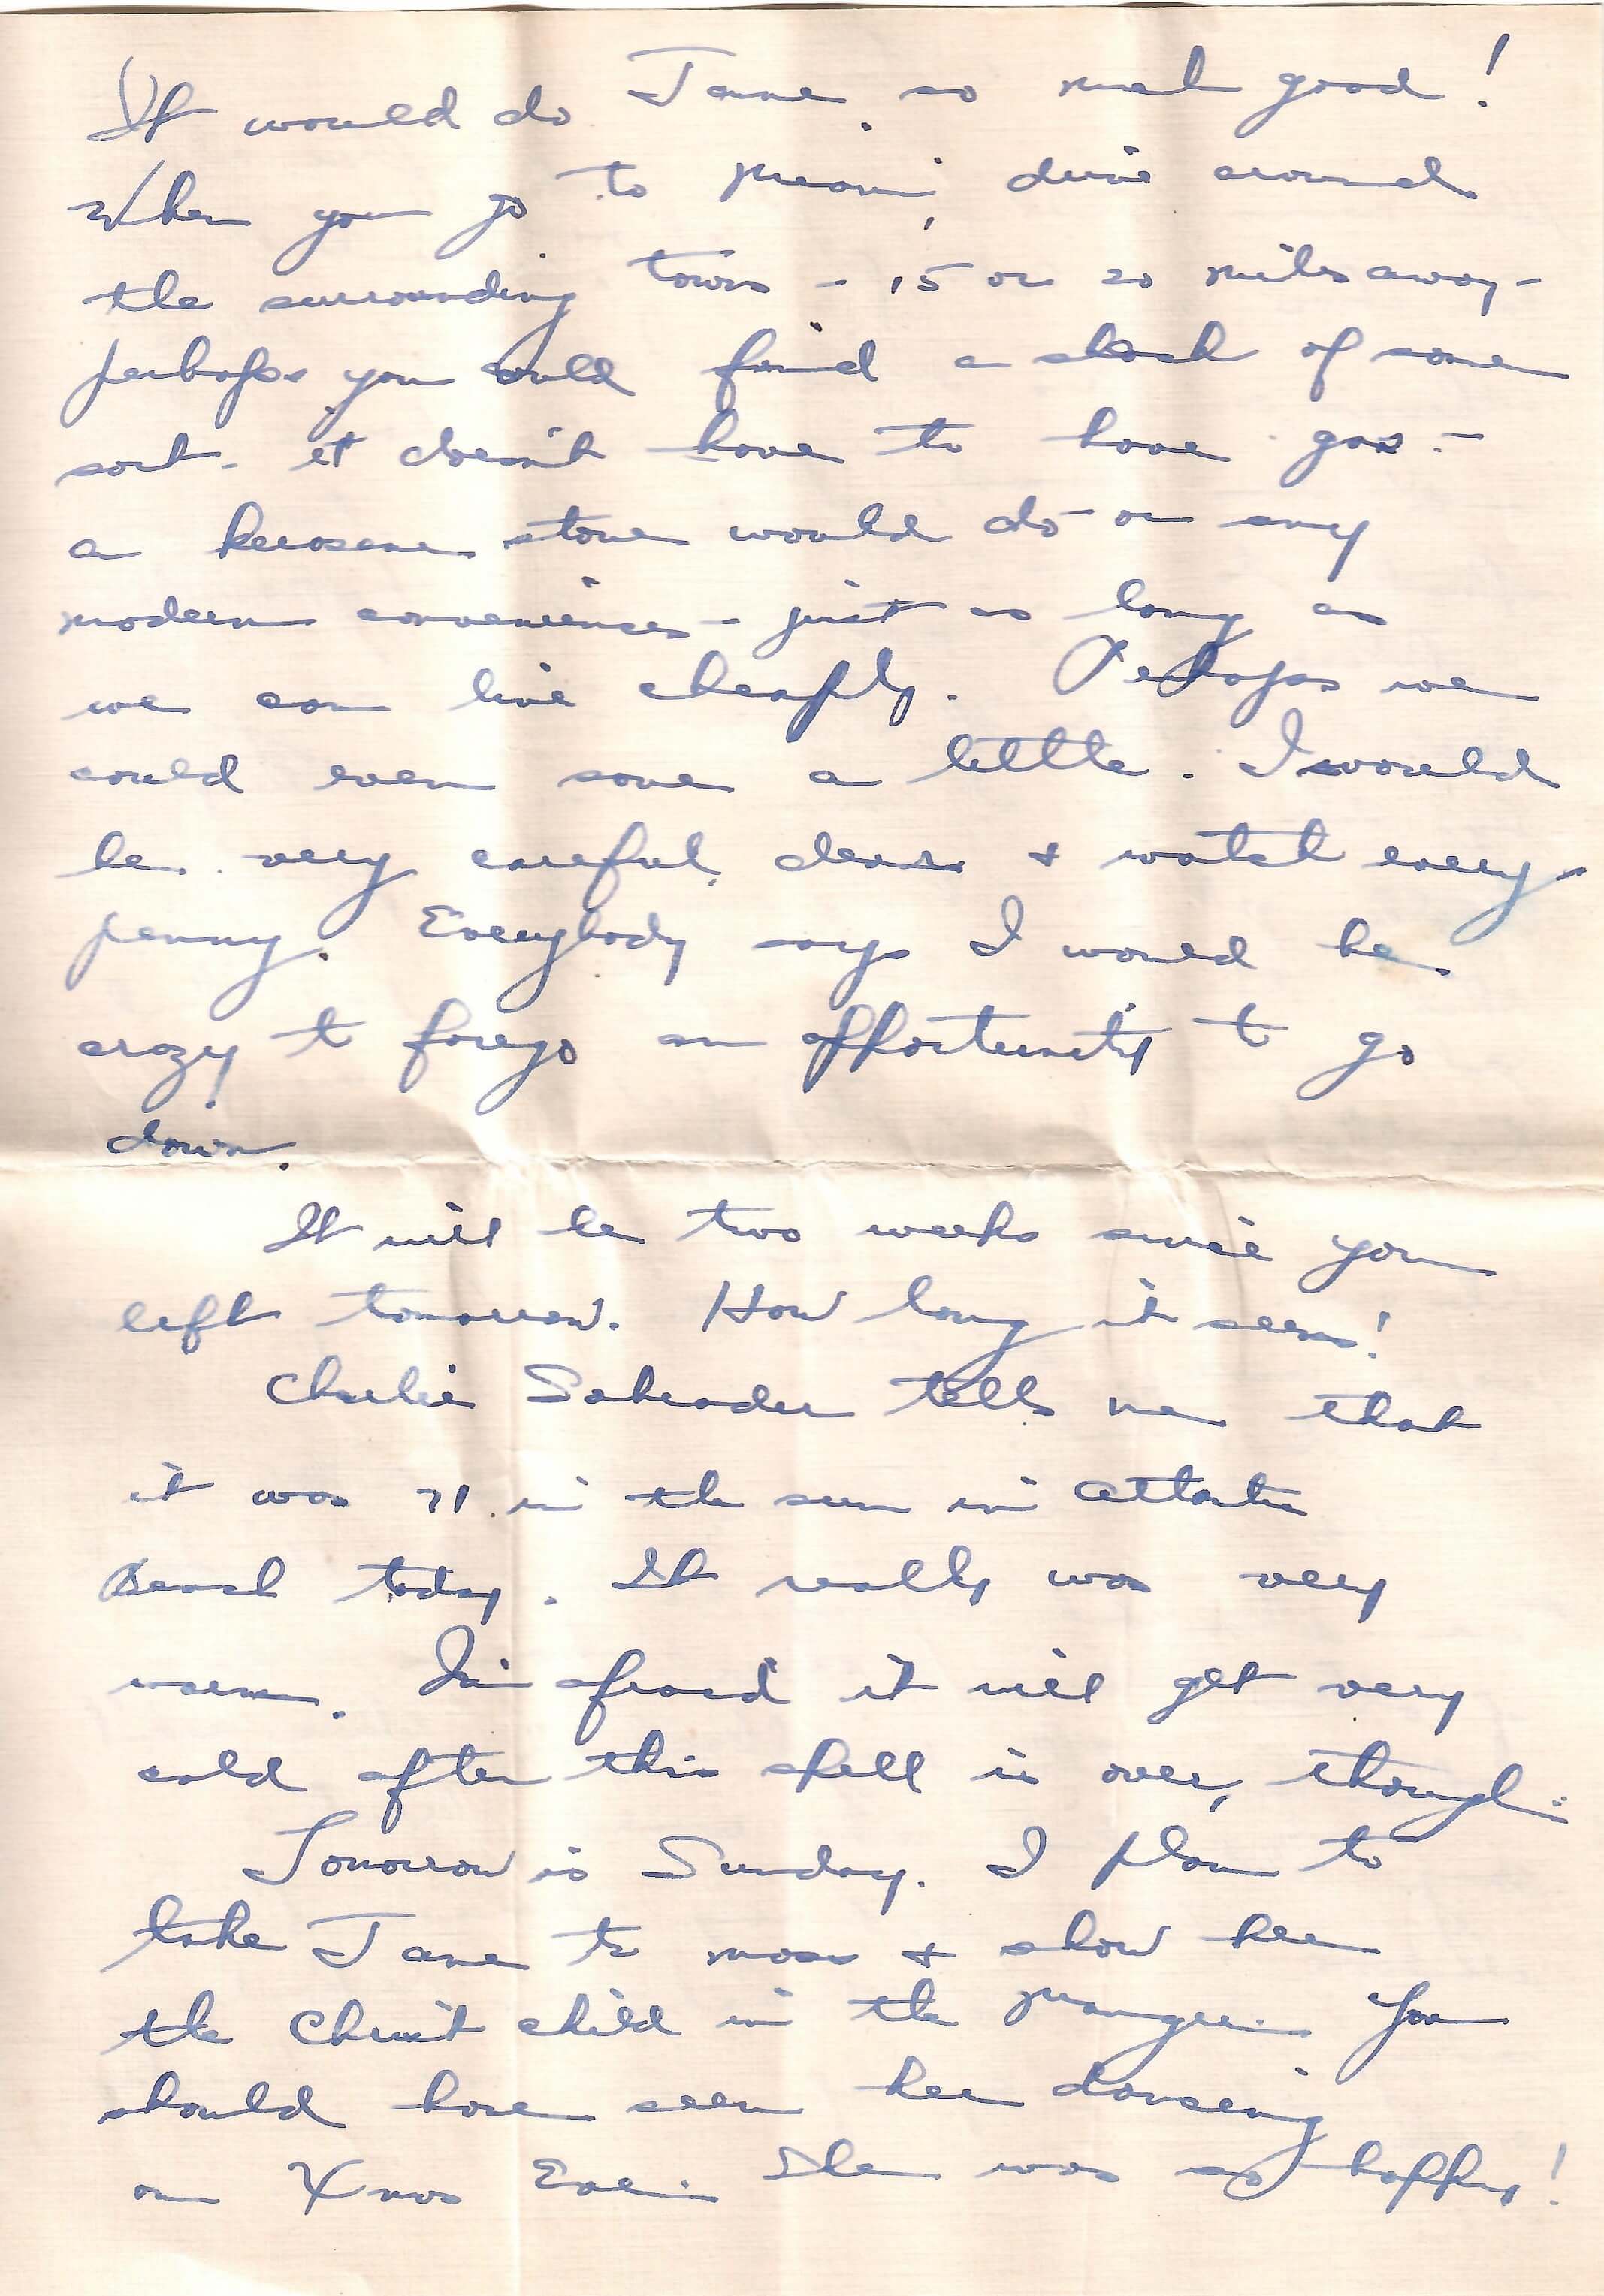 It would do Jane so much good!
When you go to Miami, drive around
the surrounding towns - 15 or 20 miles away -
perhaps you could find a shack of some
sort - it doesn't have to have gas -
a kerosene stove would do - or any
modern conveniences - just so long as
we can live cheaply. Perhaps we
could even save a little. I would
be very careful, dear & watch every
penny. Everybody says I would be
crazy to forego an opportunity to go
down.
It will be two weeks since you
left tomorrow. How long it seems!
Charlie Schrader tells me that
it was 71 in the sun in Atlantic
Beach today. It really was very
warm. I'm afraid it will get very
cold after this spell is over, though.
Tomorrow is Sunday. I plan to
take Jane to mass & show her
the Christ child in the manger. You
should have seen her dancing
on Xmas Eve. She was so happy!